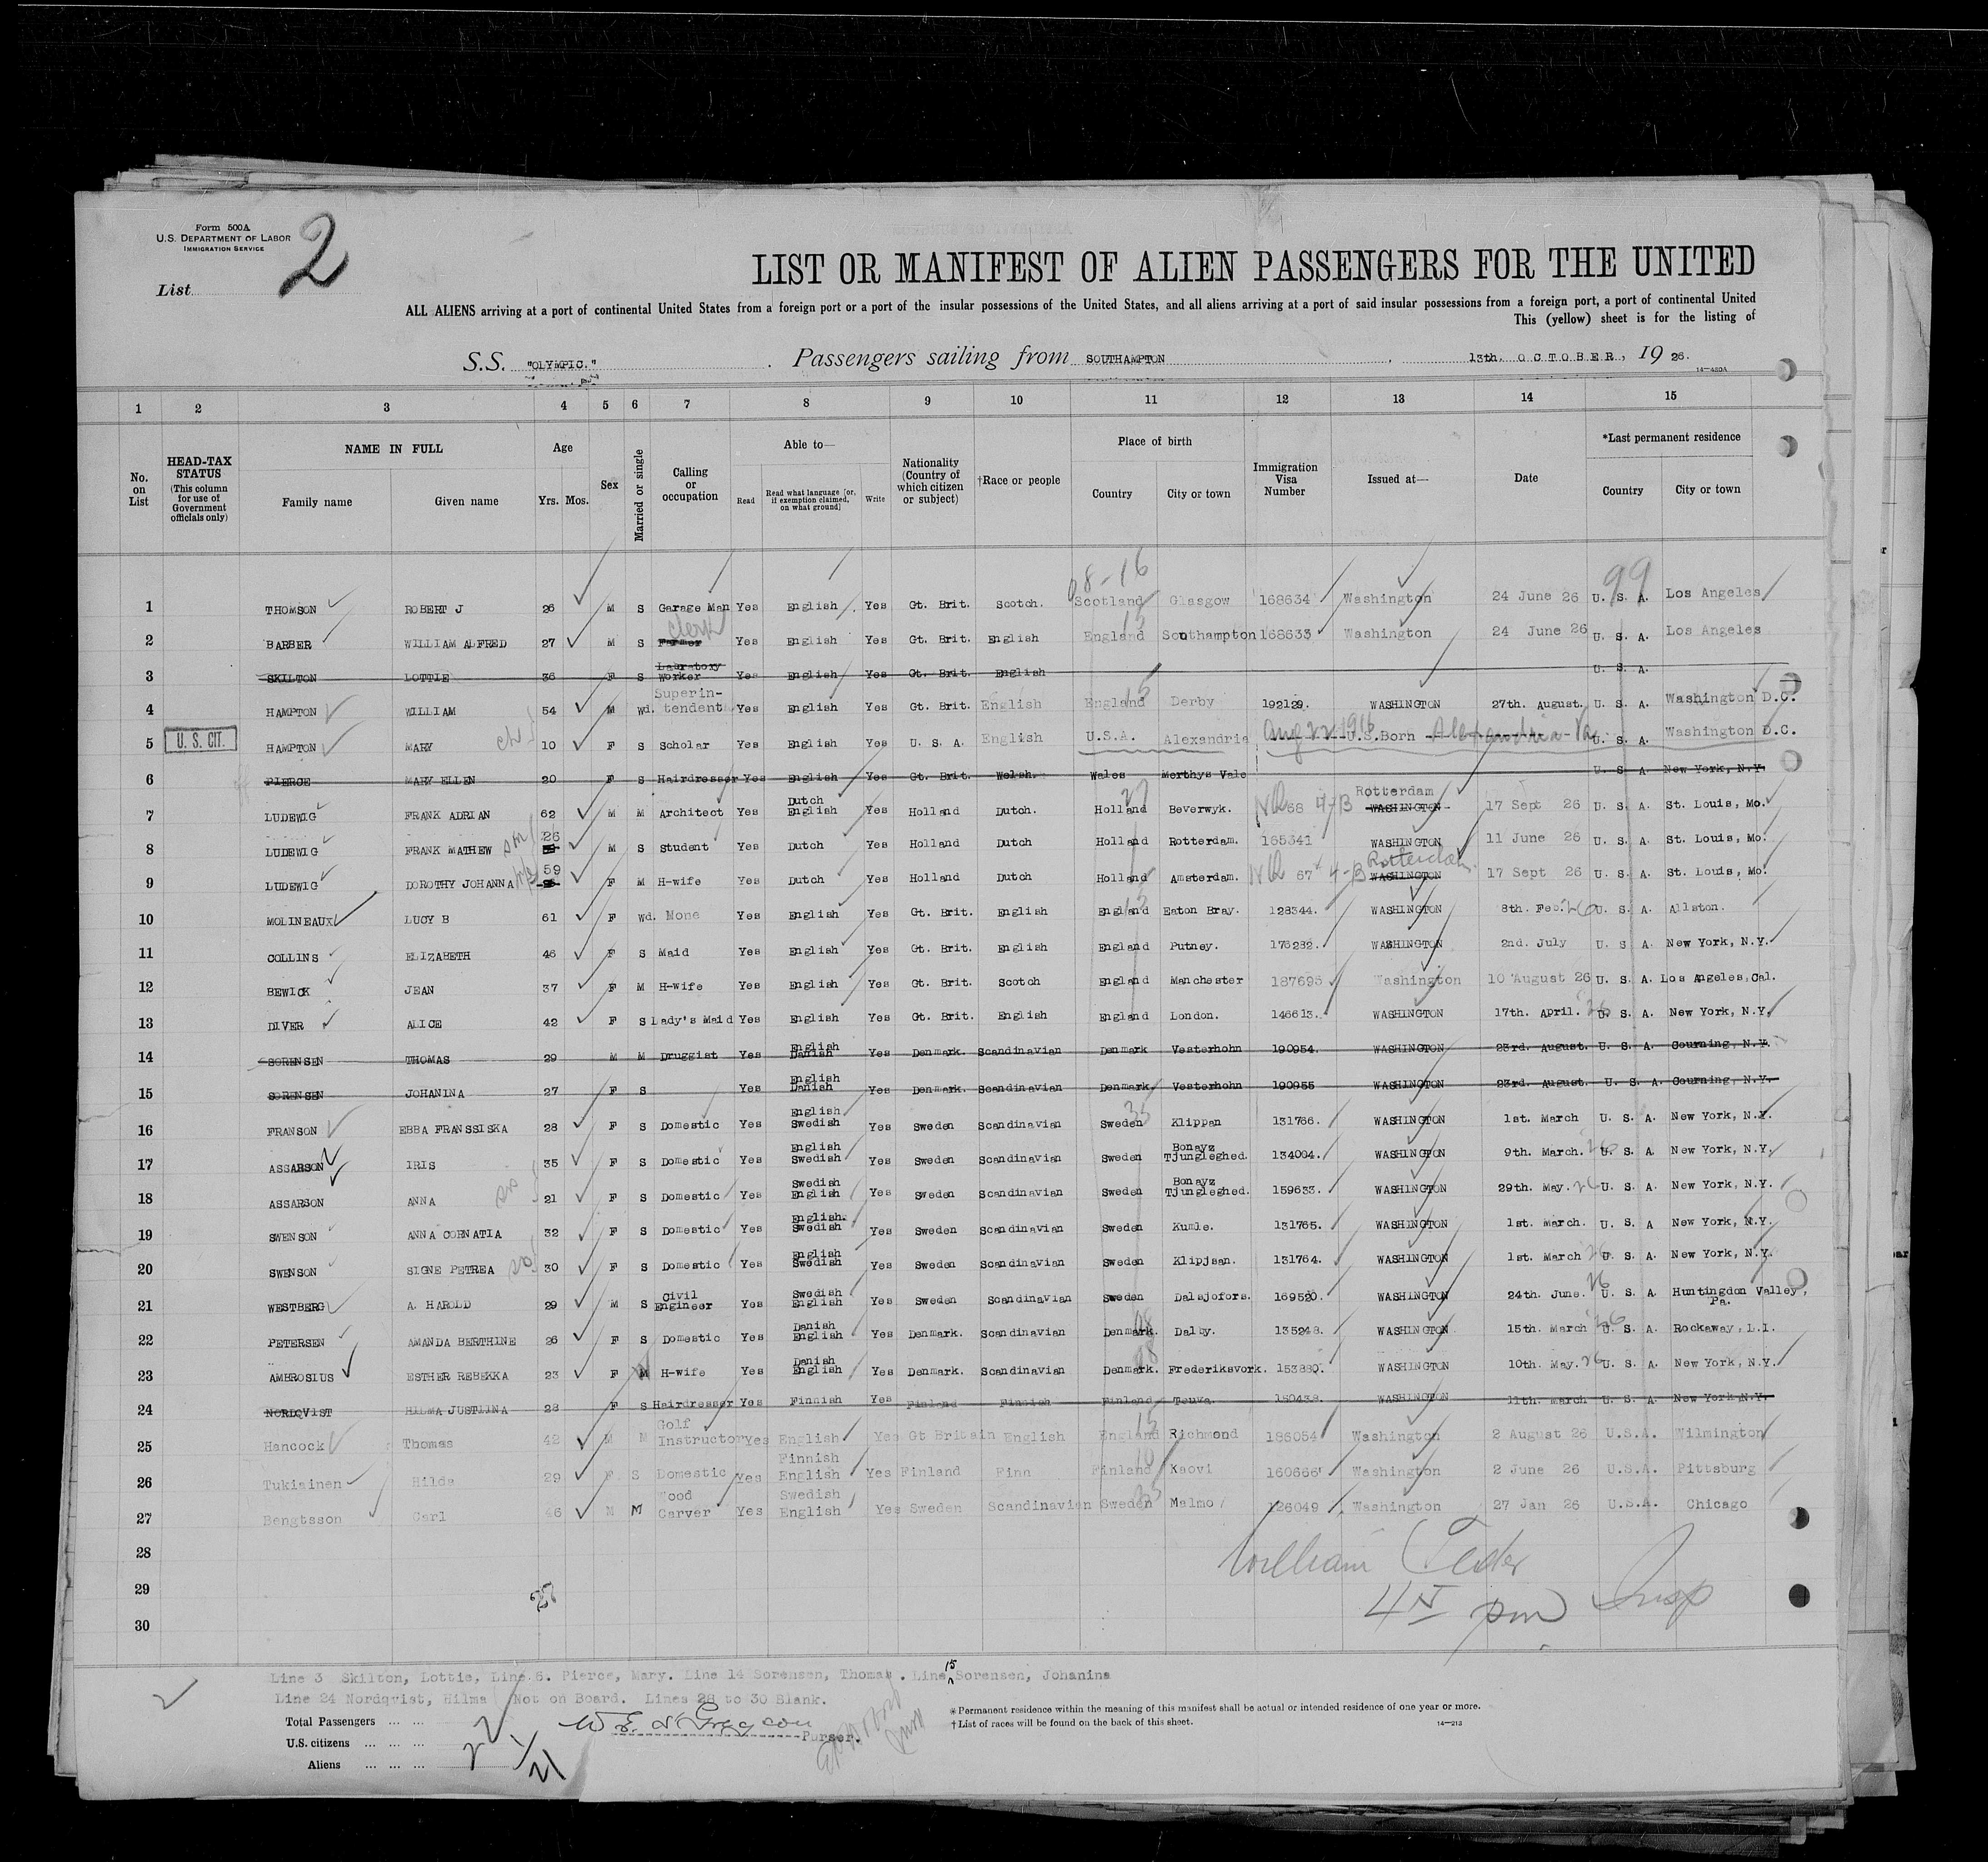 Form 500A
U.S. DEPARTMENT OF LABOR
IMMIGRATION SERVICE
List 2
LIST OR MANIFEST OF ALIEN PASSENGERS FOR THE UNITED
ALL ALIENS arriving at a port of continental United States from a foreign port or a port of the insular possessions of the United States, and all aliens arriving at a port of said insular possessions from a foreign port, a port of continental United
This (yellow) sheet is for the listing of
S.S. "OLYMPIC." Passengers sailing from SOUTHAMPTON, 13th. OCTOBER, 1926.
14—480A
1 2 3 4 5 6 7 8 9 10 11 12 13 14 15
No. on List
HEAD-TAX STATUS (This column for use of Government officials only)
NAME IN FULL Family name Given name
Age Yrs. Mos.
Sex
Married or single
Calling or occupation
Able to— Read Read what language [or, if exemption claimed, on what ground] Write
Nationality (Country of which citizen or subject)
†Race or people
Place of birth Country City or town
Immigration Visa Number
Issued at—
Date
*Last permanent residence Country City or town
08-16 99
1 THOMSON ROBERT J 26 M S Garage Man Yes English Yes Gt. Brit. Scotch. Scotland Glasgow 168634 Washington 24 June 26 U. S. A. Los Angeles
2 BARBER WILLIAM ALFRED 27 M S Farmer clerk Yes English Yes Gt. Brit. English England 15 Southampton 168633 Washington 24 June 26 U. S. A. Los Angeles
3 SKILTON LOTTIE 36 F S Labratory Worker Yes English Yes Gt. Brit. English U. S. A.
4 HAMPTON WILLIAM 54 M Wd. Superin-tendent Yes English Yes Gt. Brit. English England 15 Derby 192129. WASHINGTON 27th. August. U. S. A. Washington D.C.
5 U. S. CIT. HAMPTON MARY ch 10 F S Scholar Yes English Yes U. S. A. English U.S.A. Alexandria Aug 22-1916 U.S.Born Alexandria Va U. S. A. Washington D.C.
6 PIERCE MARY ELLEN 20 F S Hairdresser Yes English Yes Gt. Brit. Welsh. Wales Merthys Vale U. S. A. New York, N.Y.
7 LUDEWIG FRANK ADRIAN 62 M M Architect Yes Dutch English Yes Holland Dutch. Holland 27 Beverwyk. NQ 68 4-B Rotterdam WASHINGTON 17 Sept 26 U. S. A. St. Louis, Mo.
8 LUDEWIG FRANK MATHEW son 26 M S Student Yes Dutch Yes Holland Dutch Holland Rotterdam. 165341 WASHINGTON 11 June 26 U. S. A. St. Louis, Mo.
9 LUDEWIG DOROTHY JOHANNA wf 59 F M H-wife Yes Dutch Yes Holland Dutch Holland Amsterdam. NQ 67 4-B Rotterdam WASHINGTON 17 Sept 26 U. S. A. St. Louis, Mo.
10 MOLINEAUX LUCY B 61 F Wd. None Yes English Yes Gt. Brit. English England 15 Eaton Bray. 128344. WASHINGTON 8th. Feb. 26 U. S. A. Allston.
11 COLLINS ELIZABETH 46 F S Maid Yes English Yes Gt. Brit. English England Putney. 178282. WASHINGTON 2nd. July U. S A. New York, N.Y.
12 BEWICK JEAN 37 F M H-wife Yes English Yes Gt. Brit. Scotch England Manchester 187695 Washington 10 August 26 U. S. A. Los Angeles, Cal.
13 DIVER ALICE 42 F S Lady's Maid Yes English Yes Gt. Brit. English England London. 146613. WASHINGTON 17th. April. 26 U. S. A. New York, N.Y.
14 SORENSEN THOMAS 29 M M Druggist Yes English Danish Yes Denmark. Scandinavian Denmark Vesterhohn 190954. WASHINGTON 23rd. August. U. S. A. Courning, N.Y.
15 SORENSEN JOHANINA 27 F S Yes English Danish Yes Denmark. Scandinavian Denmark Vesterhohn 190955 WASHINGTON 23rd. August. U. S. A. Courning, N.Y.
16 FRANSON EBBA FRANSSISKA 28 F S Domestic Yes English Swedish Yes Sweden Scandinavian Sweden 35 Klippan 131766. WASHINGTON 1st. March U. S. A. New York, N.Y.
17 ASSARSON IRIS 35 F S Domestic Yes English Swedish Yes Sweden Scandinavian Sweden Bonayz Tjungleghed. 134004. WASHINGTON 9th. March. 26 U. S. A. New York, N.Y.
18 ASSARSON ANNA sis 21 F S Domestic Yes Swedish English Yes Sweden Scandinavian Sweden Bonayz Tjungleghed. 159633. WASHINGTON 29th. May. 26 U. S. A. New York, N.Y.
19 SWENSON ANNA CORNATIA 32 F S Domestic Yes English. Swedish Yes Sweden Scandinavian Sweden Kumle. 131765. WASHINGTON 1st. March. U. S. A New York, N.Y.
20 SWENSON SIGNE PETREA sis 30 F S Domestic Yes English Swedish Yes Sweden Scandinavian Sweden Klipjsan. 131764. WASHINGTON 1st. March 26 U. S. A. New York, N.Y.
21 WESTBERG A. HAROLD 29 M S Civil Engineer Yes Swedish English Yes Sweden Scandinavian Sweden Dalsjofors. 169520. WASHINGTON 24th. June. 26 U. S. A. Huntingdon Valley, Pa.
22 PETERSEN AMANDA BERTHINE 26 F S Domestic Yes Danish English Yes Denmark. Scandinavian Denmark. 08 Dalby. 135248. WASHINGTON 15th. March 26 U. S. A. Rockaway, L.I.
23 AMBROSIUS ESTHER REBEKKA 23 F M H-wife Yes Danish English Yes Denmark. Scandinavian Denmark. 08 Frederiksvork. 153880. WASHINGTON 10th. May. 26 U. S. A. New York, N.Y.
24 NORDQVIST HILMA JUSTIINA 28 F S Hairdresser Yes Finnish Yes Finland Finnish Finland Teuva. 150438. WASHINGTON 11th. march U. S. A. New York, N.Y.
25 Hancock Thomas 42 M M Golf Instructor Yes English Yes Gt Britain English England 15 Richmond 186054 Washington 2 August 26 U.S.A. Wilmington
26 Tukiainen Hilda 29 F S Domestic Yes Finnish English Yes Finland Finn Finland 10 Kaovi 160666 Washington 2 June 26 U.S.A. Pittsburg
27 Bengtsson Carl 46 M M Wood Carver Yes Swedish English Yes Sweden Scandinavian Sweden 35 Malmo 126049 Washington 27 Jan 26 U.S.A. Chicago
28
29
30
William Insp
pm
Line 3 Skilton, Lottie, Line 6. Pierce, Mary. Line 14 Sorensen, Thomas. Line 15 Sorensen, Johanina
Line 24 Nordqvist, Hilma Not on Board. Lines 28 to 30 Blank.
Total Passengers ... ...
U.S. citizens ... ... ...
Aliens ... ... ...
Purser.
*Permanent residence within the meaning of this manifest shall be actual or intended residence of one year or more.
†List of races will be found on the back of this sheet.
14—213